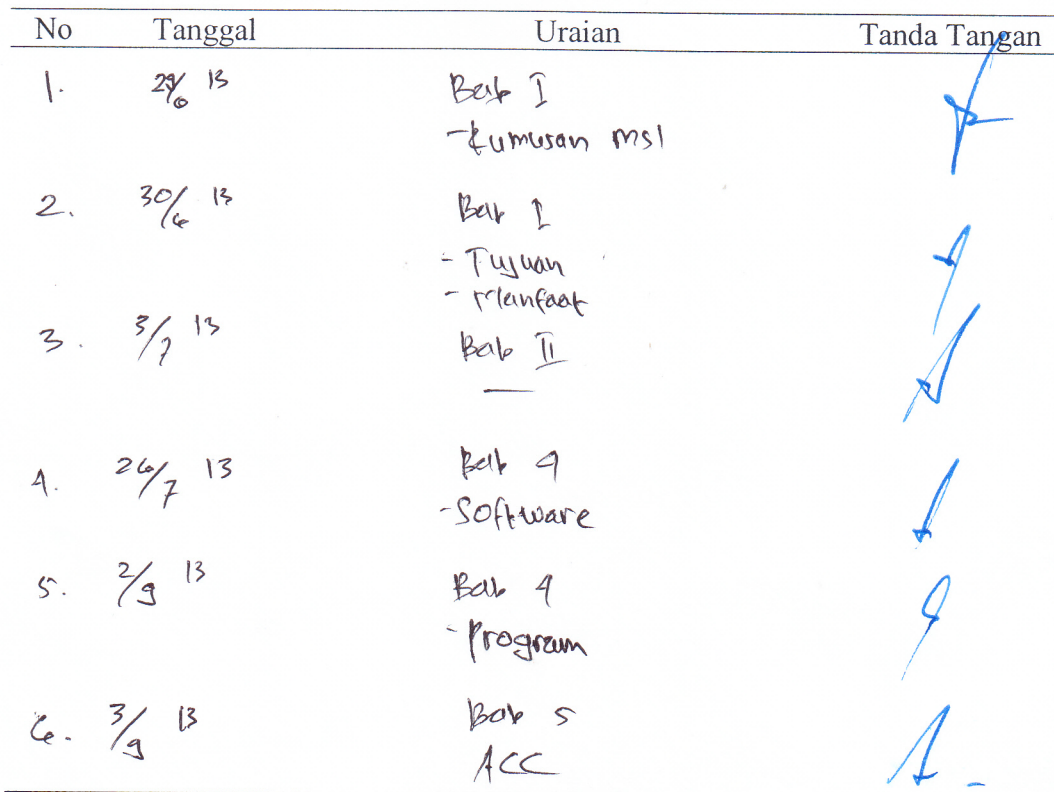 No Tanggal Uraian Tanda Tangan
1. 29/6 13 Bab I
- Rumusan msl
2. 30/6 13 Bab I
- Tujuan
- Manfaat
3. 3/7 13 Bab II
4. 26/7 13 Bab 4
- Software
5. 2/9 13 Bab 4
- Program
6. 3/9 13 Bab 5
ACC